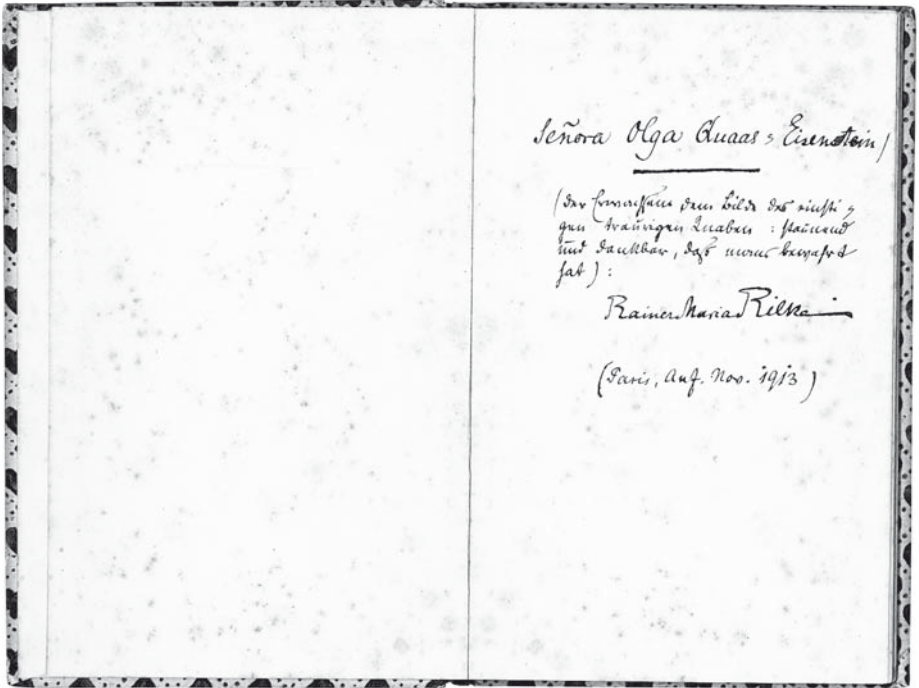 Señora Olga Quaas = Eisenstein /
(der Erwachsene dem Bilde des einsti =
gen traurigen Knaben : staunend
und dankbar, daß mans bewahrt
hat ) :
Rainer Maria Rilke
(Paris, Anf. Nov. 1913 )